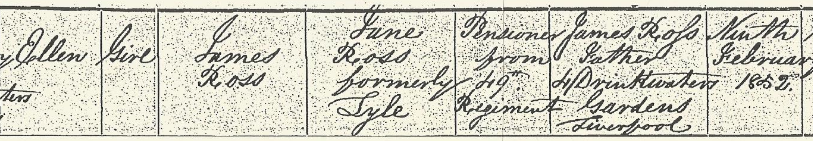 y Ellen
ters
Girl
James
Ross
Jane
Ross
formerly
Lyle
Pensioner
from
49th
Regiment
James Ross
Father
4 Drinkwaters
Gardens
Liverpool
Ninth
February
1852